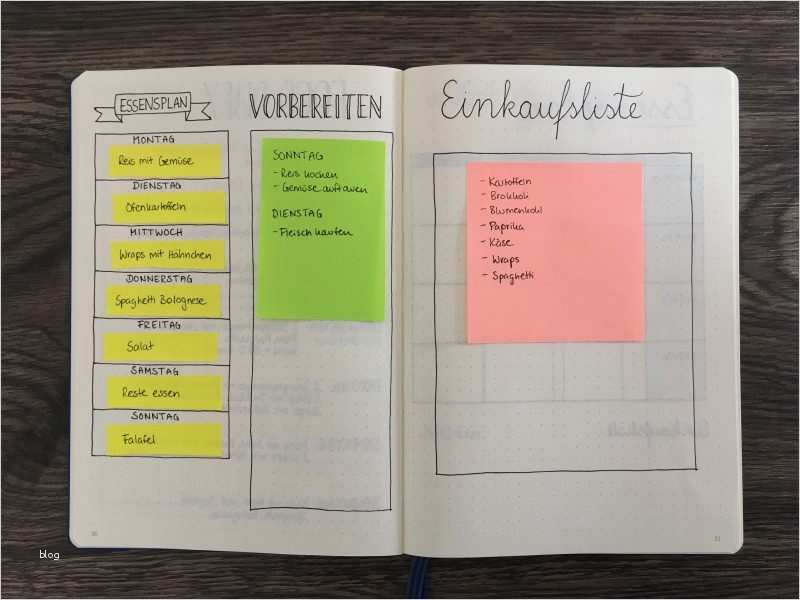 ESSENSPLAN
MONTAG
Reis mit Gemüse
DIENSTAG
Ofenkartoffeln
MITTWOCH
Wraps mit Hähnchen
DONNERSTAG
Spaghetti Bolognese
FREITAG
Salat
SAMSTAG
Reste essen
SONNTAG
Falafel
VORBEREITEN
SONNTAG
- Reis kochen
- Gemüse auftauen
DIENSTAG
- Fleisch kaufen
Einkaufsliste
- Kartoffeln
- Brokkoli
- Blumenkohl
- Paprika
- Käse
- Wraps
- Spaghetti
blog